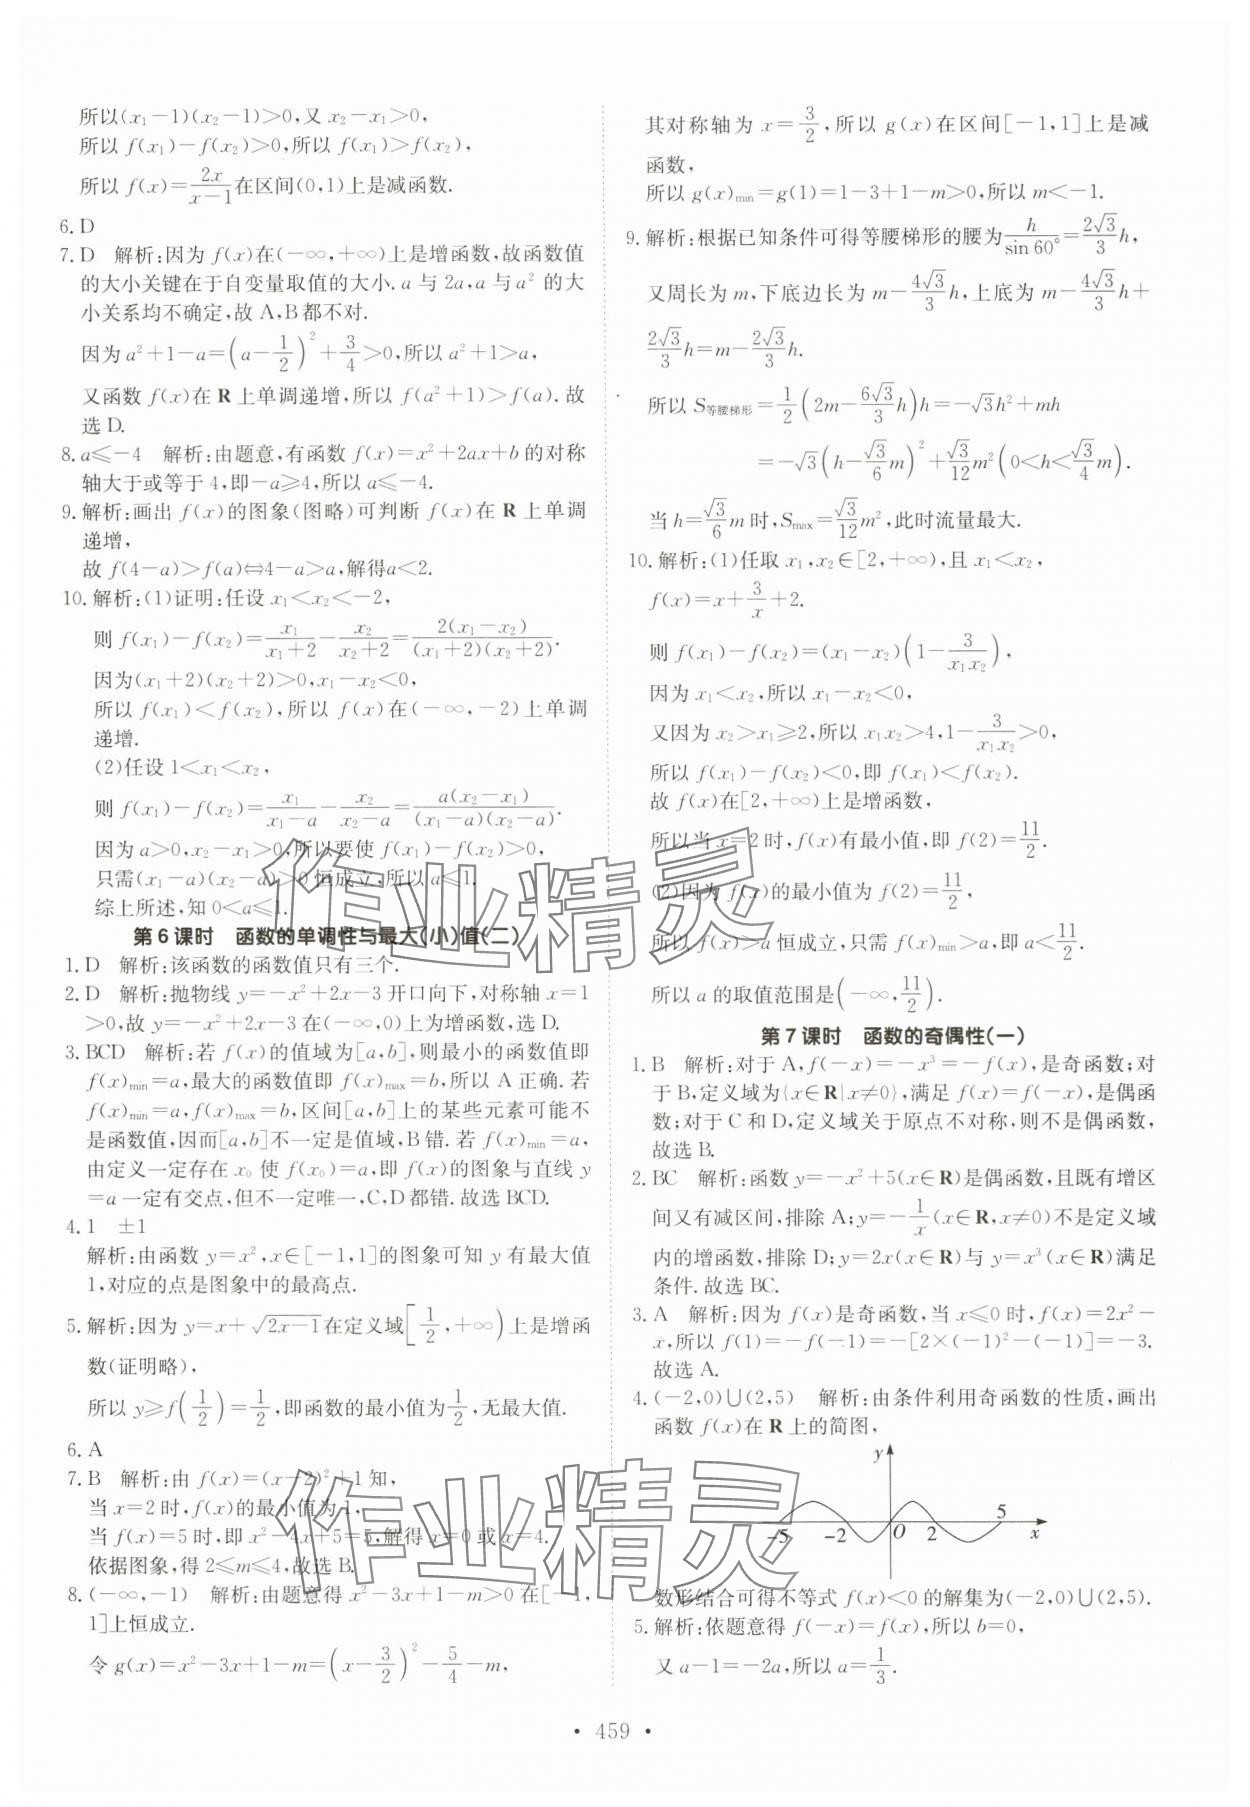 所以(x₁－1)(x₂－1)＞0,又 x₂－x₁＞0,
所以 f(x₁)－f(x₂)＞0,所以 f(x₁)＞f(x₂),
所以 f(x)＝2x/(x－1)在区间(0,1)上是减函数.
6. D
7. D 解析:因为 f(x)在(－∞,＋∞)上是增函数,故函数值
的大小关键在于自变量取值的大小. a 与 2a,a 与 a² 的大
小关系均不确定,故 A,B 都不对.
因为 a²＋1－a＝(a－1/2)²＋3/4＞0,所以 a²＋1＞a,
又函数 f(x)在 R 上单调递增,所以 f(a²＋1)＞f(a).故
选 D.
8. a≤－4 解析:由题意,有函数 f(x)＝x²＋2ax＋b 的对称
轴大于或等于 4,即－a≥4,所以 a≤－4.
9. 解析:画出 f(x)的图象(图略)可判断 f(x)在 R 上单调
递增,
故 f(4－a)＞f(a)⇔4－a＞a,解得a＜2.
10. 解析:(1)证明:任设 x₁＜x₂＜－2,
则 f(x₁)－f(x₂)＝x₁/(x₁＋2)－x₂/(x₂＋2)＝2(x₁－x₂)/((x₁＋2)(x₂＋2)).
因为(x₁＋2)(x₂＋2)＞0,x₁－x₂＜0,
所以 f(x₁)＜f(x₂),所以 f(x)在(－∞,－2)上单调
递增.
(2)任设 1＜x₁＜x₂,
则 f(x₁)－f(x₂)＝x₁/(x₁－a)－x₂/(x₂－a)＝a(x₂－x₁)/((x₁－a)(x₂－a)).
因为 a＞0,x₂－x₁＞0,所以要使 f(x₁)－f(x₂)＞0,
只需(x₁－a)(x₂－a)＞0 恒成立,所以 a≤1.
综上所述,知 0＜a≤1.
第 6 课时 函数的单调性与最大(小)值(二)
1. D 解析:该函数的函数值只有三个.
2. D 解析:抛物线 y＝－x²＋2x－3 开口向下,对称轴 x＝1
＞0,故 y＝－x²＋2x－3 在(－∞,0)上为增函数,选 D.
3. BCD 解析:若 f(x)的值域为[a,b],则最小的函数值即
f(x)min＝a,最大的函数值即 f(x)max＝b,所以 A 正确.若
f(x)min＝a,f(x)max＝b,区间[a,b]上的某些元素可能不
是函数值,因而[a,b]不一定是值域,B 错.若 f(x)min＝a,
由定义一定存在 x₀ 使 f(x₀)＝a,即 f(x)的图象与直线 y
＝a 一定有交点,但不一定唯一,C,D 都错.故选 BCD.
4. 1 ±1
解析:由函数 y＝x²,x∈[－1,1]的图象可知 y 有最大值
1,对应的点是图象中的最高点.
5. 解析:因为 y＝x＋√(2x－1)在定义域[1/2,＋∞)上是增函
数(证明略),
所以 y≥f(1/2)＝1/2,即函数的最小值为1/2,无最大值.
6. A
7. B 解析:由 f(x)＝(x－2)²＋1 知,
当 x＝2 时,f(x)的最小值为 1,
当 f(x)＝5 时,即 x²－4x＋5＝5,解得 x＝0 或 x＝4.
依据图象,得 2≤m≤4,故选 B.
8. (－∞,－1) 解析:由题意得 x²－3x＋1－m＞0 在[－1,
1]上恒成立.
令 g(x)＝x²－3x＋1－m＝(x－3/2)²－5/4－m,
其对称轴为 x＝3/2,所以 g(x)在区间[－1,1]上是减
函数,
所以 g(x)min＝g(1)＝1－3＋1－m＞0,所以 m＜－1.
9. 解析:根据已知条件可得等腰梯形的腰为h/sin 60°＝(2√3/3)h,
又周长为 m,下底边长为 m－(4√3/3)h,上底为 m－(4√3/3)h＋
(2√3/3)h＝m－(2√3/3)h.
所以 S等腰梯形＝1/2(2m－(6√3/3)h)h＝－√3h²＋mh
＝－√3(h－(√3/6)m)²＋(√3/12)m²(0＜h＜(√3/4)m).
当 h＝(√3/6)m 时,Smax＝(√3/12)m²,此时流量最大.
10. 解析:(1)任取 x₁,x₂∈[2,＋∞),且 x₁＜x₂,
f(x)＝x＋3/x＋2.
则 f(x₁)－f(x₂)＝(x₁－x₂)(1－3/(x₁x₂)),
因为 x₁＜x₂,所以 x₁－x₂＜0,
又因为 x₂＞x₁≥2,所以 x₁x₂＞4,1－3/(x₁x₂)＞0,
所以 f(x₁)－f(x₂)＜0,即 f(x₁)＜f(x₂).
故 f(x)在[2,＋∞)上是增函数,
所以当 x＝2 时,f(x)有最小值,即 f(2)＝11/2.
(2)因为 f(x)的最小值为 f(2)＝11/2,
所以 f(x)＞a 恒成立,只需 f(x)min＞a,即 a＜11/2.
所以 a 的取值范围是(－∞,11/2).
第 7 课时 函数的奇偶性(一)
1. B 解析:对于 A,f(－x)＝－x³＝－f(x),是奇函数;对
于 B,定义域为{x∈R|x≠0},满足 f(x)＝f(－x),是偶函
数;对于 C 和 D,定义域关于原点不对称,则不是偶函数,
故选 B.
2. BC 解析:函数 y＝－x²＋5(x∈R)是偶函数,且既有增区
间又有减区间,排除 A;y＝－1/x(x∈R,x≠0)不是定义域
内的增函数,排除 D;y＝2x(x∈R)与 y＝x³(x∈R)满足
条件.故选 BC.
3. A 解析:因为 f(x)是奇函数,当 x≤0 时,f(x)＝2x²－
x,所以 f(1)＝－f(－1)＝－[2×(－1)²－(－1)]＝－3.
故选 A.
4. (－2,0)∪(2,5) 解析:由条件利用奇函数的性质,画出
函数 f(x)在 R 上的简图,
y
5
－5 －2 O 2 x
数形结合可得不等式 f(x)＜0 的解集为(－2,0)∪(2,5).
5. 解析:依题意得 f(－x)＝f(x),所以 b＝0,
又 a－1＝－2a,所以 a＝1/3.
· 459 ·
作业精灵
作业精灵